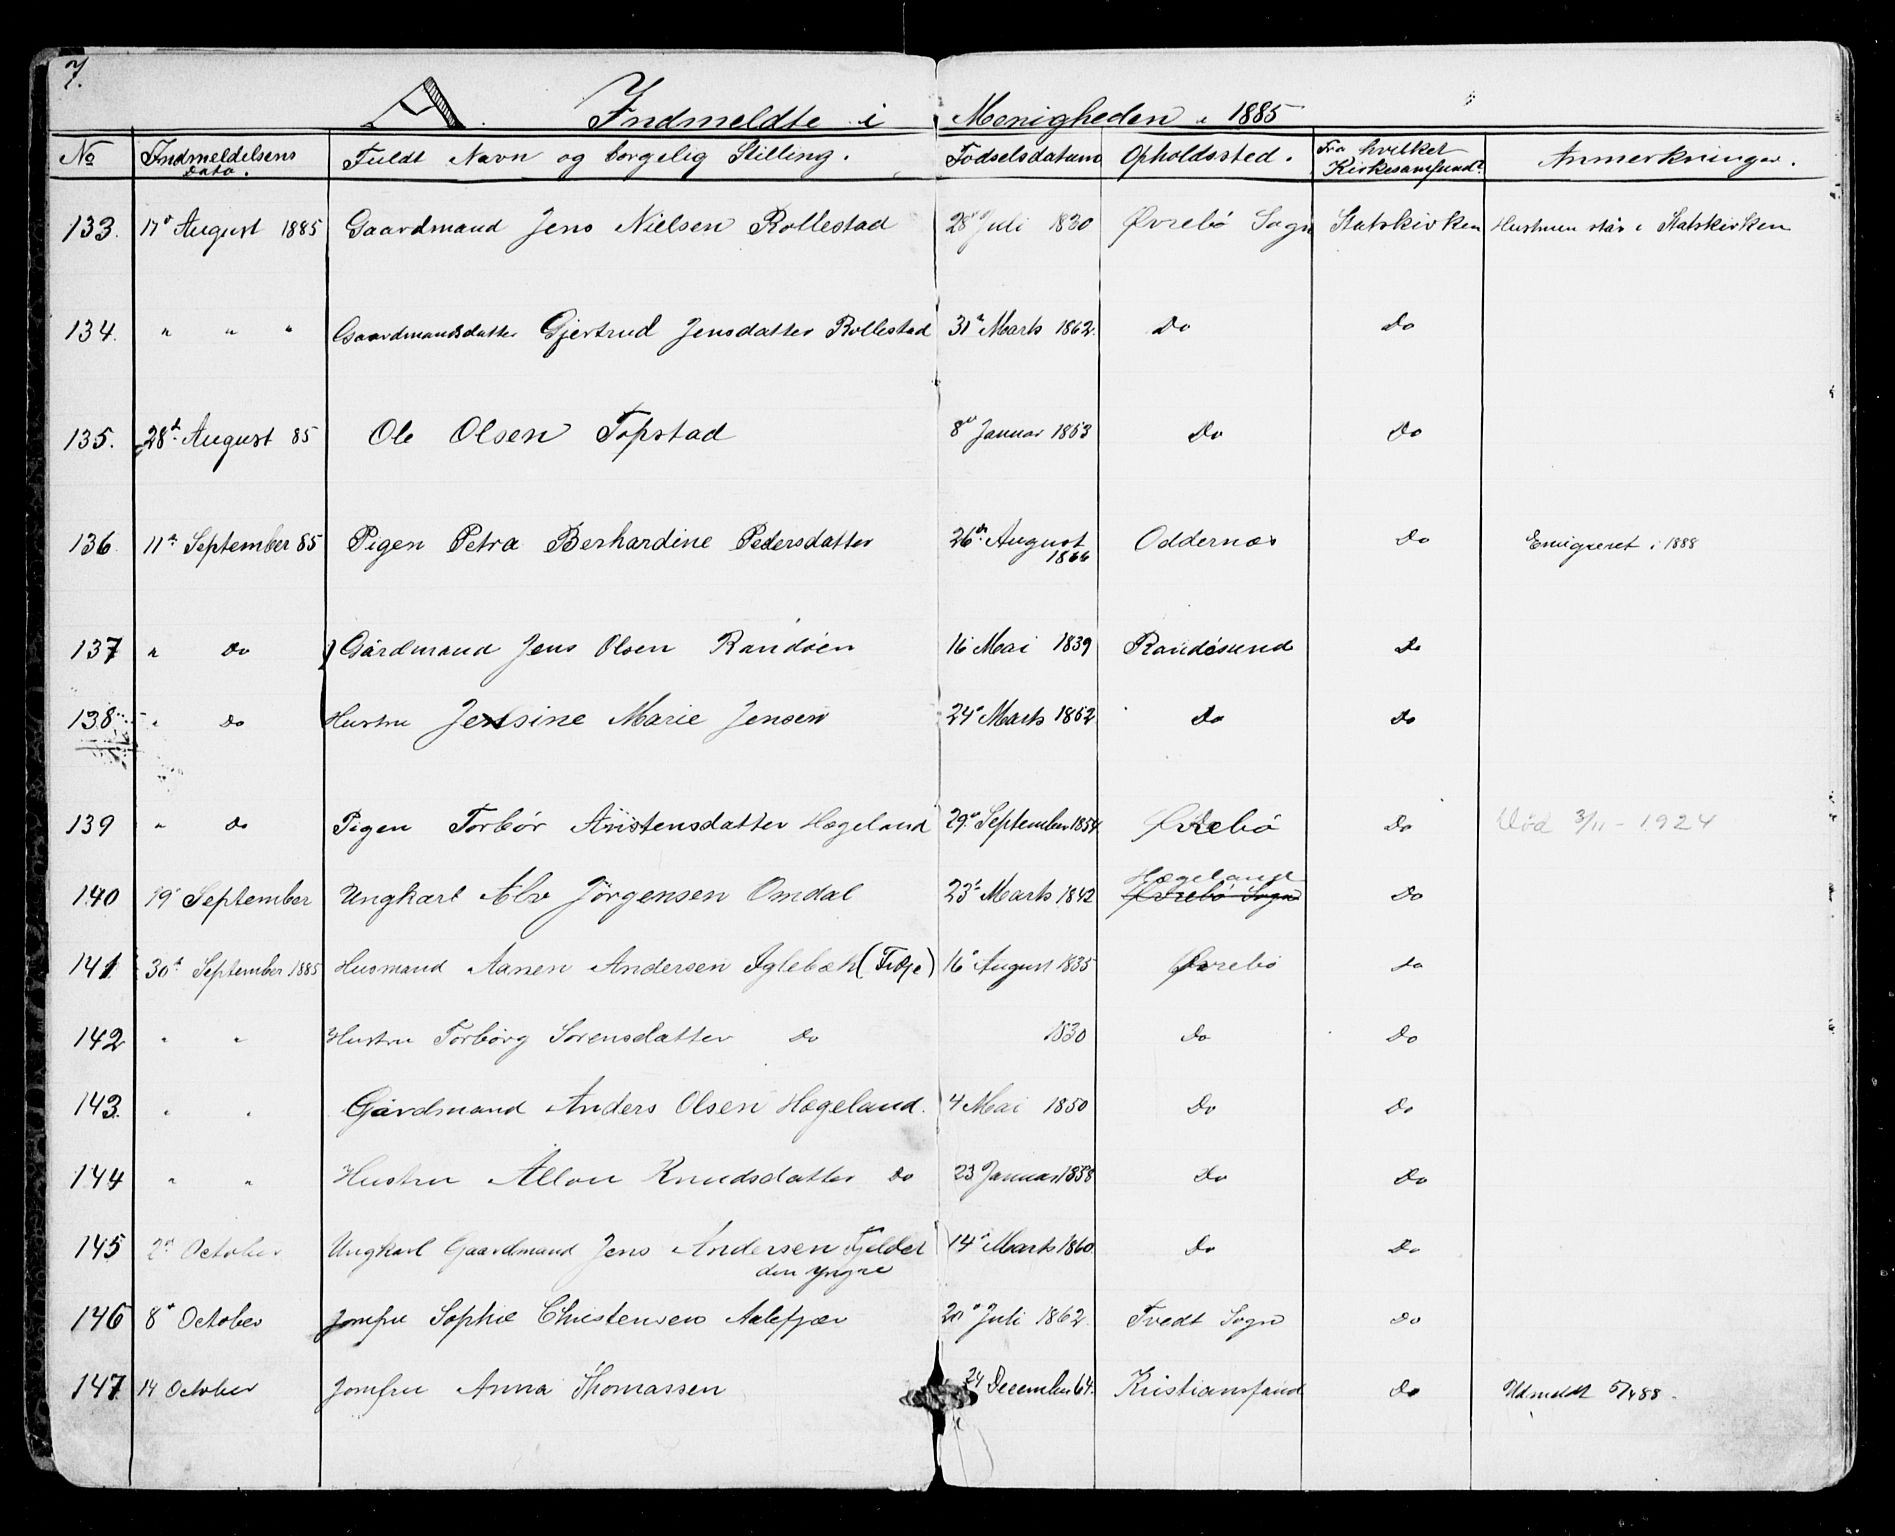 7.
A. Indmeldte i Menigheden i 1885
No Indmeldelsens Dato. Fuldt Navn og borgelig Stilling. Fødselsdatum Opholdssted. Fra hvilket Kirkesamfund? Anmerkninger.
133. 17d August 1885 Gaardmand Jens Nielsen Rollestad 28d Juli 1820 Øvrebø Sogn Statskirken Hustruen står i Statskirken
134. " " " Gaardmandsdatter Gjertrud Jensdatter Rollestad 31d Marts 1862. Do Do
135. 28d August 85 Ole Olsen Topstad 8d Januar 1853 Do Do
136. 11te September 85 Pigen Petra Berhardine Pedersdatter 26de August 1866 Oddernæs Do Emigreret i 1888
137 " Do Gårdmand Jens Olsen Randøen 16 Mai 1839 Randøsund Do
138 " Do Hustru Jensine Marie Jensen 24d Marts 1852 Do Do
139 " Do Pigen Torbør Aristensdatter Hægeland 29d September 1854 Øvrebø Do Død 3/11 - 1924
140 19d September Ungkarl Alv Jørgensen Omdal 23d Marts 1842 Hægeland Øvrebø Sogn Do
141 30d September 1885 Husmand Aanen Andersen Iglebæk (Fidje) 16d August 1835 Øvrebø do
142 " " Hustru Torborg Sørensdatter Do 1830 Do Do
143. " " Gårdmand Anders Olsen Hægeland. 4 Mai 1850 Do Do
144 " " Hustru Knudsdatter Do 23 Januar 1858 Do Do
145 2d October Ungkarl Gaardmand Jens Andersen Fjeldet 14d Marts 1860 Do Do
den yngre
146 8d October Jomfru Sophie Christensen Aalefjær 20d Juli 1862 Tvedt Sogn Do
147 14 October Jomfru Anna Thomassen 24 December 64. Kristiansand Do Udmeldt 5/4 88.